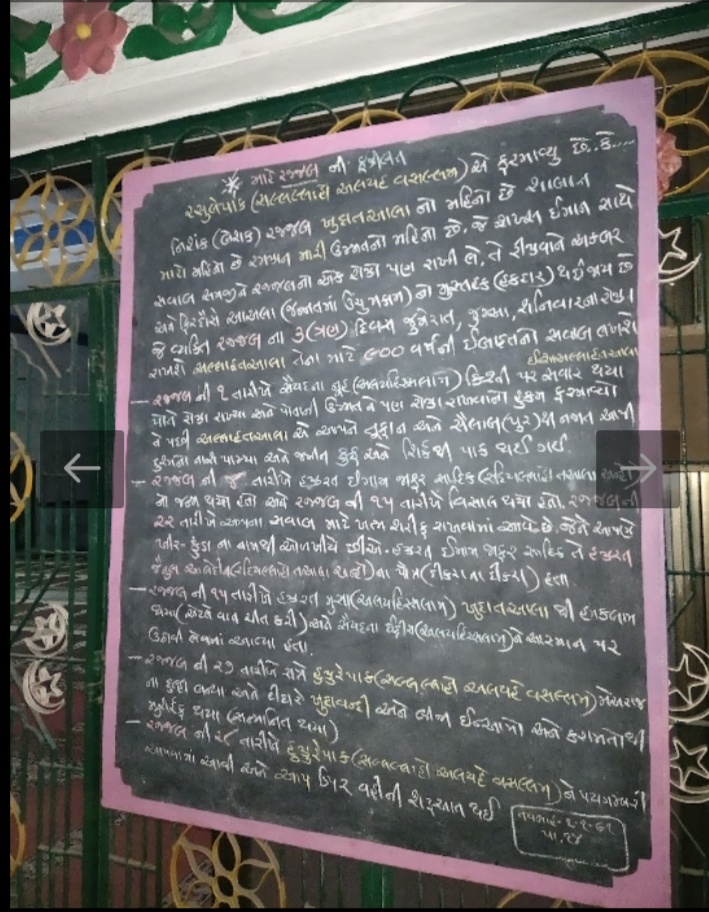 * માહે રજ્જબ ની ફઝીલત
રસુલેપાક (સલ્લલ્લાહો અલયહે વસલ્લમ) એ ફરમાવ્યુ છે.કે....
નિશંક (બેશક) રજ્જબ ખુદાતઆલા નો મહિનો છે શાબાન
મારો મહિનો છે રમઝાન મારી ઉમ્મતનો મહિનો છે. જે શખ્સ ઈમાન સાથે
સવાબ સમજીને રજ્જબનો એક રોઝો પણ રાખી લે, તે રીઝવાને અકબર
અને ફિરદૌસે આઅલા (જન્નતમાં ઉંચુ મકામ) નો મુસ્તહક (હકદાર) થઈ જાય છે
જે વ્યકિત રજ્જબ ના ૩(ત્રણ) દિવસ જુમેરાત, જુમ્આ, શનિવારના રોઝા
રાખશે અલ્લાહતઆલા તેના માટે ૯૦૦ વર્ષની ઈબાદતનો સવાબ લખશે
ઈન્શાઅલ્લાહતઆલા
— રજ્જબ ની ૧ તારીખે સૈયદના નુહ (અલયહિસ્સલામ) કિશ્તી પર સવાર થયા
પોતે રોઝા રાખ્યા અને પોતાની ઉમ્મતને પણ રોઝા રાખવાનો હુકમ ફરમાવ્યો
તે પછી અલ્લાહતઆલા એ આપને તૂફાન અને સૈલાબ(પુર)થી નજાત આપી
દુશ્મનો નાશ પામ્યા અને જમીન કુફ્ર અને શિર્ક થી પાક થઈ ગઈ.
— રજ્જબ ની તારીખે હઝરત ઈમામ જાફર સાદિક (રદિયલ્લાહો તઆલા અન્હો)
નો જન્મ થયો હતો અને રજ્જબ ની ૧૫ તારીખે વિસાલ થયો હતો. રજ્જબ ની
૨૨ તારીખે આપના સવાબ માટે ખત્મ શરીફ રાખવામાં આવે છે. જેને આપણે
ખીર-કુંડા ના નામથી ઓળખીયે છીએ. હઝરત ઈમામ જાફર સાદિક તે હઝરત
જૈનુલ આબેદીન(રદિયલ્લાહો તઆલા અન્હો)ના પૌત્ર(દીકરાના દીકરા) હતા
— રજ્જબ ની ૧૫ તારીખે હઝરત મુસા(અલયહિસ્સલામ) ખુદાતઆલા થી હમકલામ
થયા(એટલે વાત ચીત કરી) અને સૈયદના ઈદ્રીસ(અલયહિસ્સલામ)ને આસ્માન પર
ઉઠાવી લેવામાં આવ્યા હતા.
— રજ્જબ ની ૨૭ તારીખે રાત્રે હુઝુરેપાક(સલ્લલ્લાહો અલયહે વસલ્લમ) મેઅરાજ
ના દુલ્હા બન્યા અને દીદારે ખુદાવન્દી અને બીજા ઈન્આમો અને કરામતોથી
મુશર્રફ થયા (સન્માનિત થયા)
— રજ્જબ ની ૨૮ તારીખે હુઝુરેપાક(સલ્લલ્લાહો અલયહે વસલ્લમ)ને પયગમ્બરી
આપવામાં આવી અને આપ ઉપર વહીની શરૂઆત થઈ